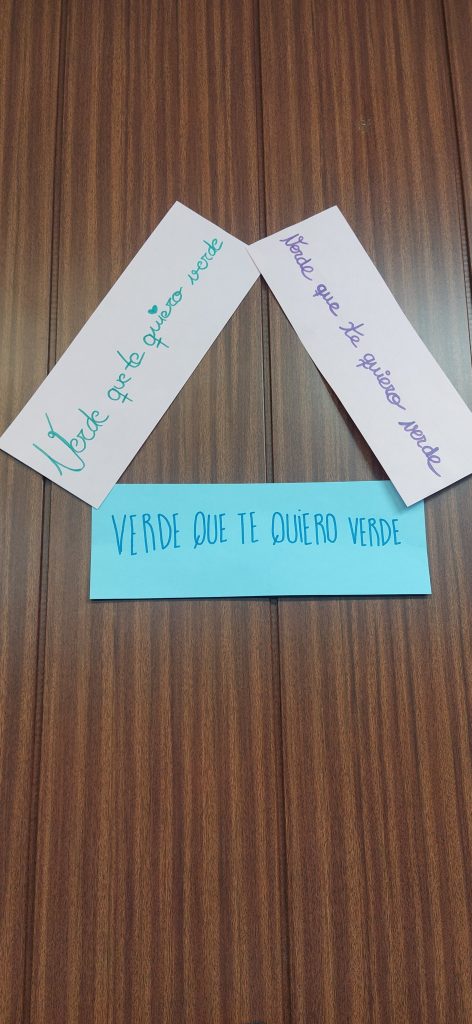 Verde que te quiero verde
Verde que te quiero verde
VERDE QUE TE QUIERO VERDE